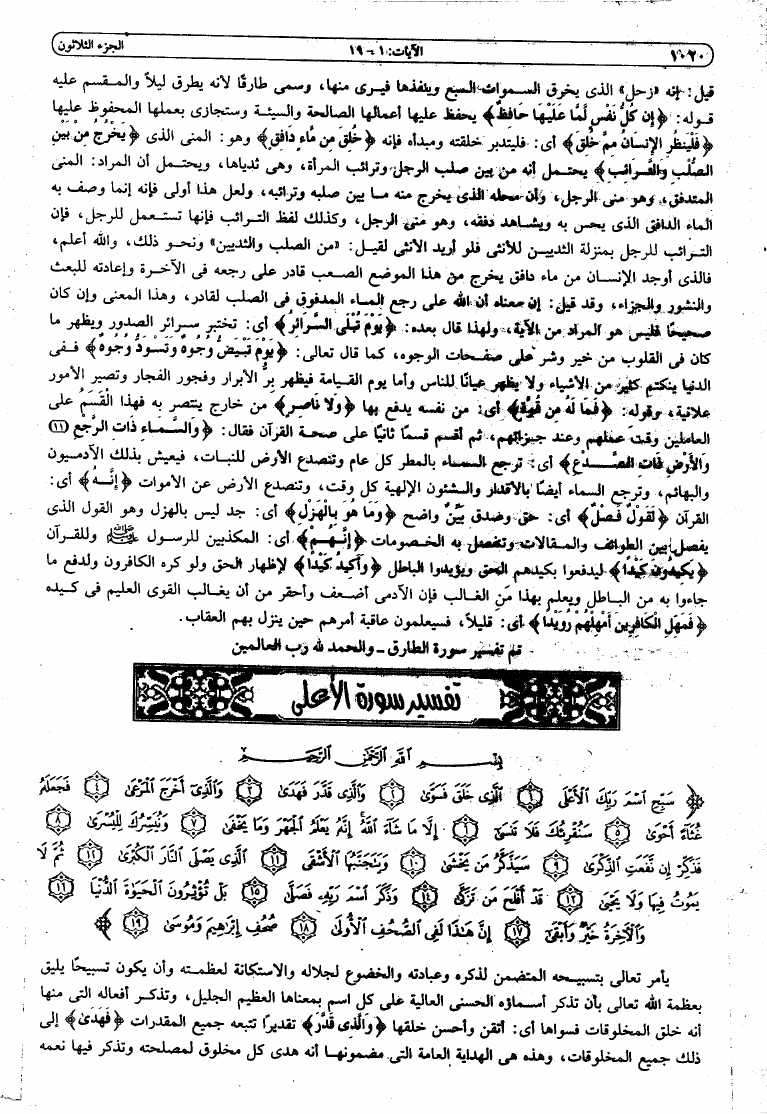 ١٠٢٠ الآيات: ١ - ١٩ الجزء الثلاثون
قيل: إنه «زحل» الذى يخرق السموات السبع وينفذها فيرى منها، وسمى طارقًا لأنه يطرق ليلاً والمقسم عليه
قوله: ﴿إِن كُلُّ نَفْسٍ لَّمَّا عَلَيْهَا حَافِظٌ﴾ يحفظ عليها أعمالها الصالحة والسيئة وستجازى بعملها المحفوظ عليها
﴿فَلْيَنظُرِ الإِنسَانُ مِمَّ خُلِقَ﴾ أى: فليتدبر خلقته ومبدأه فإنه ﴿خُلِقَ مِن مَّاءٍ دَافِقٍ﴾ وهو: المنى الذى ﴿يَخْرُجُ مِنْ بَيْنِ
الصُّلْبِ وَالتَّرَائِبِ﴾ يحتمل أنه من بين صلب الرجل وترائب المرأة، وهى ثدياها، ويحتمل أن المراد: المنى
المتدفق، وهو منى الرجل، وأن محله الذى يخرج منه ما بين صلبه وترائبه، ولعل هذا أولى فإنه إنما وصف به
الماء الدافق الذى يحس به ويشاهد دفقه، وهو منى الرجل، وكذلك لفظ الترائب فإنها تستعمل للرجل، فإن
الترائب للرجل بمنزلة الثديين للأنثى فلو أريد الأنثى لقيل: «من الصلب والثديين» ونحو ذلك، والله أعلم،
فالذى أوجد الإنسان من ماء دافق يخرج من هذا الموضع الصعب قادر على رجعه فى الآخرة وإعادته للبعث
والنشور والجزاء، وقد قيل: إن معناه أن الله على رجع الماء المدفوق فى الصلب لقادر، وهذا المعنى وإن كان
صحيحًا فليس هو المراد من الآية، ولهذا قال بعده: ﴿يَوْمَ تُبْلَى السَّرَائِرُ﴾ أى: تختبر سرائر الصدور ويظهر ما
كان فى القلوب من خير وشر على صفحات الوجوه، كما قال تعالى: ﴿يَوْمَ تَبْيَضُّ وُجُوهٌ وَتَسْوَدُّ وُجُوهٌ﴾ ففى
الدنيا ينكتم كثير من الأشياء ولا يظهر عيانًا للناس وأما يوم القيامة فيظهر بِرُّ الأبرار وفجور الفجار وتصير الأمور
علانية، وقوله: ﴿فَمَا لَهُ مِن قُوَّةٍ﴾ أى: من نفسه يدفع بها ﴿وَلا نَاصِرٍ﴾ من خارج ينتصر به فهذا القَسَم على
العاملين وقت عملهم وعند جزائهم، ثم أقسم قسمًا ثانيًا على صحة القرآن فقال: ﴿وَالسَّمَاءِ ذَاتِ الرَّجْعِ (١١)
وَالأَرْضِ ذَاتِ الصَّدْعِ﴾ أى: ترجع السماء بالمطر كل عام وتنصدع الأرض للنبات، فيعيش بذلك الآدميون
والبهائم، وترجع السماء أيضًا بالأقدار والشئون الإلهية كل وقت، وتنصدع الأرض عن الأموات ﴿إِنَّهُ﴾ أى:
القرآن ﴿لَقَوْلٌ فَصْلٌ﴾ أى: حق وصدق بيِّن واضح ﴿وَمَا هُوَ بِالْهَزْلِ﴾ أى: جد ليس بالهزل وهو القول الذى
يفصل بين الطوائف والمقالات وتنفصل به الخصومات ﴿إِنَّهُمْ﴾ أى: المكذبين للرسول ﷺ وللقرآن
﴿يَكِيدُونَ كَيْدًا﴾ ليدفعوا بكيدهم الحق ويؤيدوا الباطل ﴿وَأَكِيدُ كَيْدًا﴾ لإظهار الحق ولو كره الكافرون ولدفع ما
جاءوا به من الباطل ويعلم بهذا مَن الغالب فإن الآدمى أضعف وأحقر من أن يغالب القوى العليم فى كيده
﴿فَمَهِّلِ الْكَافِرِينَ أَمْهِلْهُمْ رُوَيْدًا﴾ أى: قليلاً، فسيعلمون عاقبة أمرهم حين ينزل بهم العقاب.
تم تفسير سورة الطارق - والحمد لله رب العالمين
تفسير سورة الأعلى
بسم الله الرحمن الرحيم
﴿سَبِّحِ اسْمَ رَبِّكَ الْأَعْلَى ﴿١﴾ الَّذِى خَلَقَ فَسَوَّىٰ ﴿٢﴾ وَالَّذِى قَدَّرَ فَهَدَىٰ ﴿٣﴾ وَالَّذِىٓ أَخْرَجَ الْمَرْعَىٰ ﴿٤﴾ فَجَعَلَهُۥ
غُثَآءً أَحْوَىٰ ﴿٥﴾ سَنُقْرِئُكَ فَلَا تَنسَىٰٓ ﴿٦﴾ إِلَّا مَا شَآءَ اللَّهُ إِنَّهُۥ يَعْلَمُ الْجَهْرَ وَمَا يَخْفَىٰ ﴿٧﴾ وَنُيَسِّرُكَ لِلْيُسْرَىٰ ﴿٨﴾
فَذَكِّرْ إِن نَّفَعَتِ الذِّكْرَىٰ ﴿٩﴾ سَيَذَّكَّرُ مَن يَخْشَىٰ ﴿١٠﴾ وَيَتَجَنَّبُهَا الْأَشْقَى ﴿١١﴾ الَّذِى يَصْلَى النَّارَ الْكُبْرَىٰ ﴿١٢﴾ ثُمَّ لَا
يَمُوتُ فِيهَا وَلَا يَحْيَىٰ ﴿١٣﴾ قَدْ أَفْلَحَ مَن تَزَكَّىٰ ﴿١٤﴾ وَذَكَرَ اسْمَ رَبِّهِۦ فَصَلَّىٰ ﴿١٥﴾ بَلْ تُؤْثِرُونَ الْحَيَوٰةَ الدُّنْيَا ﴿١٦﴾
وَالْآخِرَةُ خَيْرٌ وَأَبْقَىٰٓ ﴿١٧﴾ إِنَّ هَٰذَا لَفِى الصُّحُفِ الْأُولَىٰ ﴿١٨﴾ صُحُفِ إِبْرَٰهِيمَ وَمُوسَىٰ ﴿١٩﴾﴾
يأمر تعالى بتسبيحه المتضمن لذكره وعبادته والخضوع لجلاله والاستكانة لعظمته وأن يكون تسبيحًا يليق
بعظمة الله تعالى بأن تذكر أسماؤه الحسنى العالية على كل اسم بمعناها العظيم الجليل، وتذكر أفعاله التى منها
أنه خلق المخلوقات فسواها أى: أتقن وأحسن خلقها ﴿وَالَّذِى قَدَّرَ﴾ تقديرًا تتبعه جميع المقدرات ﴿فَهَدَىٰ﴾ إلى
ذلك جميع المخلوقات، وهذه هى الهداية العامة التى مضمونها أنه هدى كل مخلوق لمصلحته وتذكر فيها نعمه